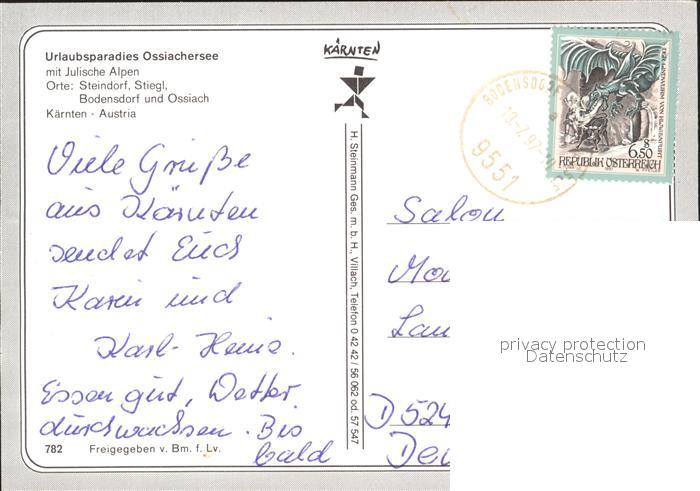 Urlaubsparadies Ossiachersee
mit Julische Alpen
Orte: Steindorf, Stiegl,
Bodensdorf und Ossiach
Kärnten · Austria
KÄRNTEN
Viele Grüße
aus Kärnten
sendet Euch
Karin und
Karl-Heinz.
Essen gut, Wetter
durchwachsen. Bis
bald
782 Freigegeben v. Bm. f. Lv.
H. Steinmann Ges. m. b. H., Villach, Telefon 0 42 42 / 56 062 od. 57 547
BODENSDORF
9551
DER LINDWURM VON KLAGENFURT
S
6.50
REPUBLIK ÖSTERREICH
Salon
Mo
Lau
D 524
Deu
privacy protection
Datenschutz